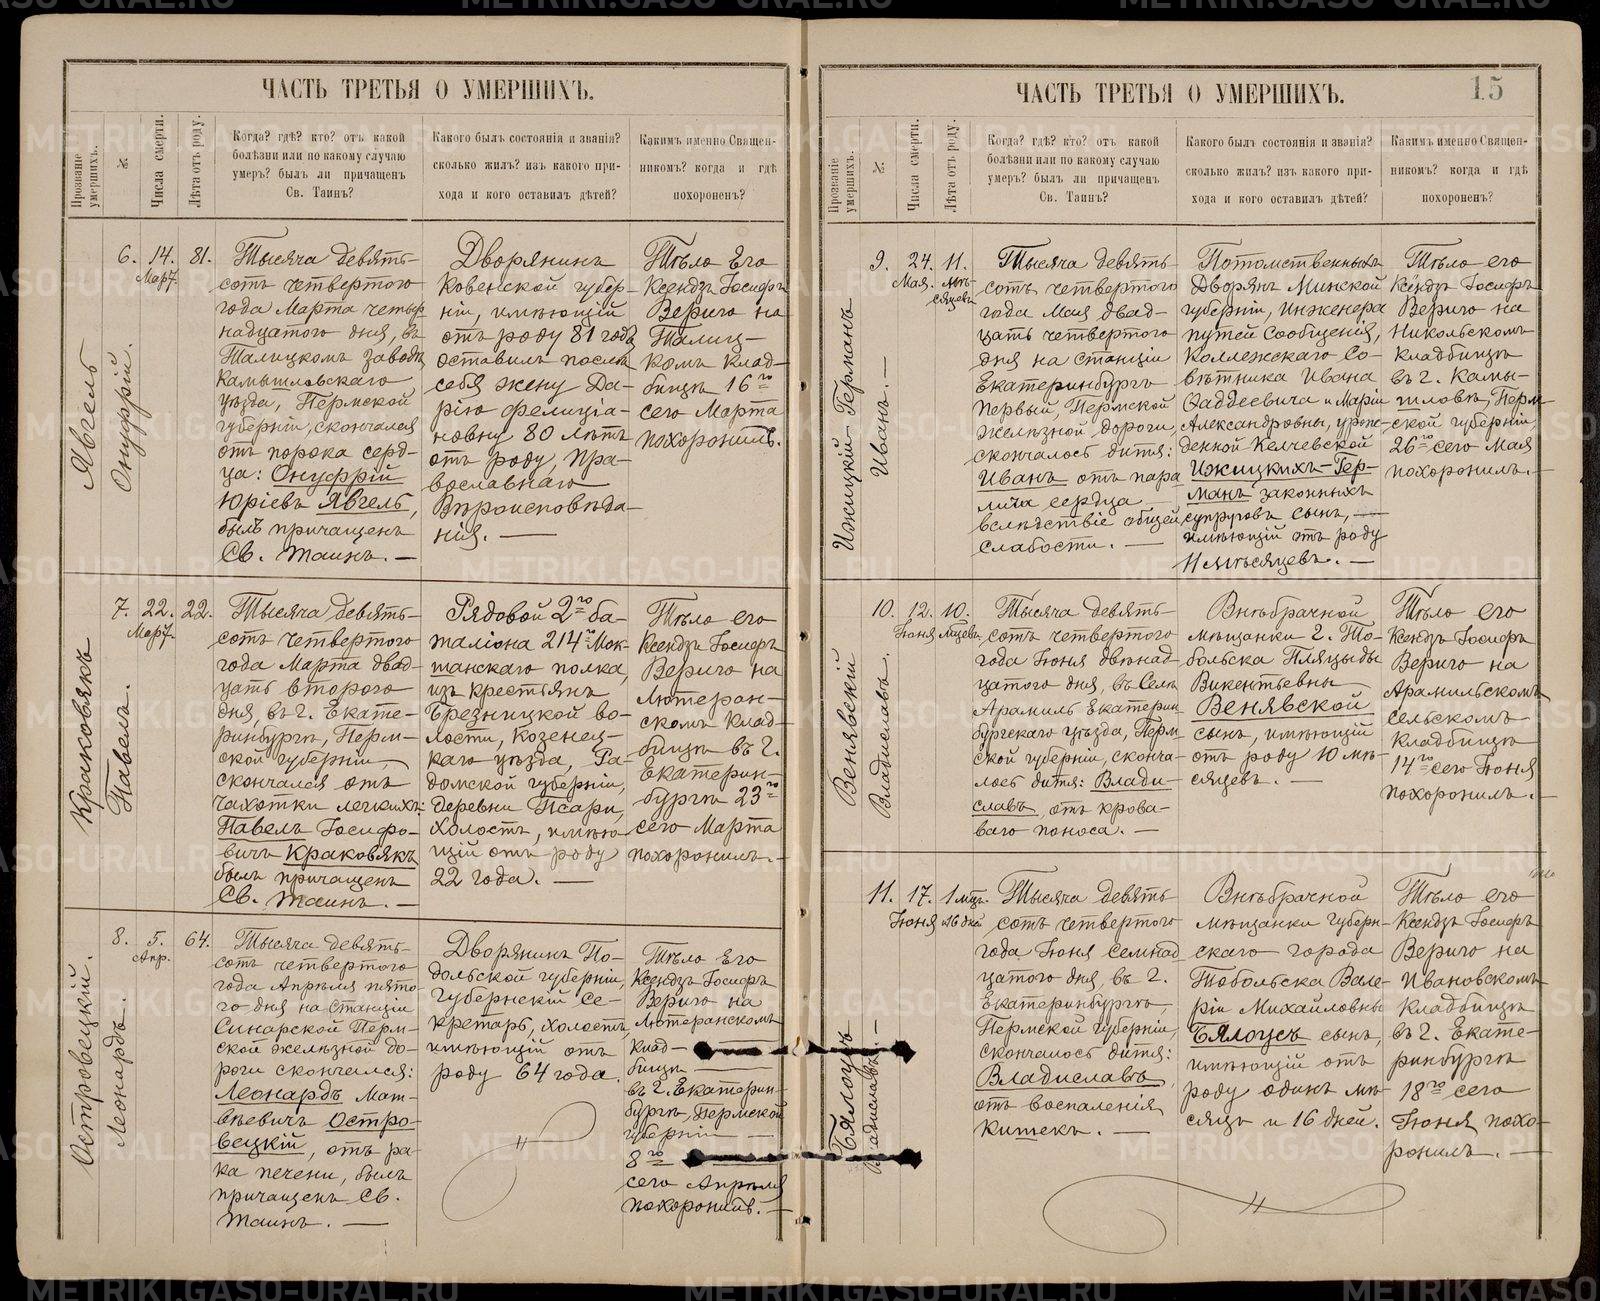 ЧАСТЬ ТРЕТЬЯ О УМЕРШИХЪ.
Прозваніе умершихъ.
№
Числа смерти.
Лѣта отъ роду.
Когда? гдѣ? кто? отъ какой
болѣзни или по какому случаю
умеръ? былъ ли причащенъ
Св. Таинъ?
Какого былъ состоянія и званія?
сколько жилъ? изъ какого при-
хода и кого оставилъ дѣтей?
Какимъ именно Священ-
никомъ? когда и гдѣ
похороненъ?
Явгель
Онуфрій.
6.
14.
Март.
81.
Тысяча девять-
сотъ четвертого
года Марта четыр
надцатого дня, въ
Талицкомъ заводѣ
Камышловскаго
уѣзда, Пермской
губерніи, скончался
отъ порока серд-
ца: Онуфрій
Юріевъ Явгель,
былъ причащенъ
Св. Таинъ. —
Дворянинъ
Ковенской губер-
ніи, имѣющій
отъ роду 81 годъ
оставилъ послѣ
себя жену Да-
рію Фелиціа-
новну 80 лѣтъ
отъ роду, пра-
вославнаго
Вѣроисповѣда-
нія. —
Тѣло Его
Ксендзъ Іосифъ
Вериго на
Талиц-
комъ клад-
бищѣ 16го
сего Марта
похоронилъ.
Краковякъ
Павелъ.
7.
22.
Март.
22.
Тысяча девять-
сотъ четвертого
года Марта двад-
цать второго
дня, въ г. Екате-
ринбургѣ, Перм-
ской губерніи,
скончался отъ
чахотки легкихъ:
Павелъ Іосифо-
вичъ Краковякъ
былъ причащенъ
Св. Таинъ. —
Рядовой 2го ба-
таліона 214го Мок-
шанскаго полка,
изъ крестьянъ
Брезницкой во-
лости, Козенец-
каго уѣзда, Ра-
домской губерніи,
деревни Псари,
холостъ, имѣю-
щій отъ роду
22 года. —
Тѣло его
Ксендзъ Іосифъ
Вериго на
Лютеран-
скомъ клад-
бищѣ въ г.
Екатерин-
бургѣ 23го
сего Марта
похоронилъ. —
Островецкій.
Леонардъ.
8.
5.
Апр.
64.
Тысяча девять-
сотъ четвертого
года Апрѣля пято-
го дня на станціи
Синарской Перм-
ской желѣзной до-
роги скончался:
Леонардъ Мат-
вѣевичъ Остро-
вецкій, отъ ра-
ка печени, былъ
причащенъ Св.
Таинъ. —
Дворянинъ По-
дольской губерніи,
Губернскій Се-
кретарь, холостъ,
имѣющій отъ
роду 64 года.
Тѣло Его
Ксендзъ Іосифъ
Вериго на
Лютеранскомъ
клад-
бищѣ
въ г. Екатерин-
бургѣ, Пермской
губерніи —
8го
сего Апрѣля
похоронилъ. —
15
ЧАСТЬ ТРЕТЬЯ О УМЕРШИХЪ.
Прозваніе умершихъ.
№
Числа смерти.
Лѣта отъ роду.
Когда? гдѣ? кто? отъ какой
болѣзни или по какому случаю
умеръ? былъ ли причащенъ
Св. Таинъ?
Какого былъ состоянія и званія?
сколько жилъ? изъ какого при-
хода и кого оставилъ дѣтей?
Какимъ именно Священ-
никомъ? когда и гдѣ
похороненъ?
Ижицкій-Германъ
Иванъ. —
9.
24.
Мая.
11.
мѣ-
сяцевъ
Тысяча девять-
сотъ четвертого
года Мая двад-
цать четвертого
дня на станціи
Екатеринбургъ
Первый, Пермской
желѣзной дороги,
скончалось дитя:
Иванъ отъ пара
лича сердца
вслѣдствіе общей
слабости. —
Потомственныхъ
Дворянъ Минской
губерніи, инженера
путей сообщенія,
Коллежскаго Со-
вѣтника Ивана
Фаддеевича и Маріи
Александровны, урож-
денной Келчевской
Ижицкихъ-Гер-
манъ законныхъ
супруговъ сынъ, —
имѣющій отъ роду
11 мѣсяцевъ. —
Тѣло его
Ксендзъ Іосифъ
Вериго на
Никольскомъ
кладбищѣ
въ г. Камы-
шловѣ, Перм-
ской губерніи,
26го сего Мая
похоронилъ. —
Венявскій
Владиславъ.
10.
12.
Іюня
10.
Мѣцевъ.
Тысяча девять-
сотъ четвертого
года Іюня двѣнад-
цатого дня, въ Селѣ
Арамиль Екатерин
бургскаго уѣзда, Перм
ской губерніи, сконча-
лось дитя: Влади-
славъ, отъ крова-
ваго поноса. —
Внѣбрачной
мѣщанки г. То-
больска Пляциды
Викентьевны
Венявской
сынъ, имѣющій
отъ роду 10 мѣ-
сяцевъ. —
Тѣло его
Ксендзъ Іосифъ
Вериго на
Арамильскомъ
сельскомъ
кладбищѣ
14го сего Іюня
похоронилъ. —
Бялоусъ
Владиславъ. —
11.
17.
Іюня
1 мѣц.
16 дней
Тысяча девять-
сотъ четвертого
года Іюня семнад
цатого дня, въ г.
Екатеринбургѣ,
Пермской губерніи,
скончалось дитя:
Владиславъ,
отъ воспаленія
кишекъ. —
Внѣбрачной
мѣщанки губерн-
скаго города
Тобольска Вале-
ріи Михайловны
Бялоусъ сынъ,
имѣющій отъ
роду одинъ мѣ-
сяцъ и 16 дней.
Тѣло его
Ксендзъ Іосифъ
Вериго на
Ивановскомъ
кладбищѣ
въ г. Екате-
ринбургѣ
18го сего
Іюня похо-
ронилъ. —
METRIKI.GASO-URAL.RU